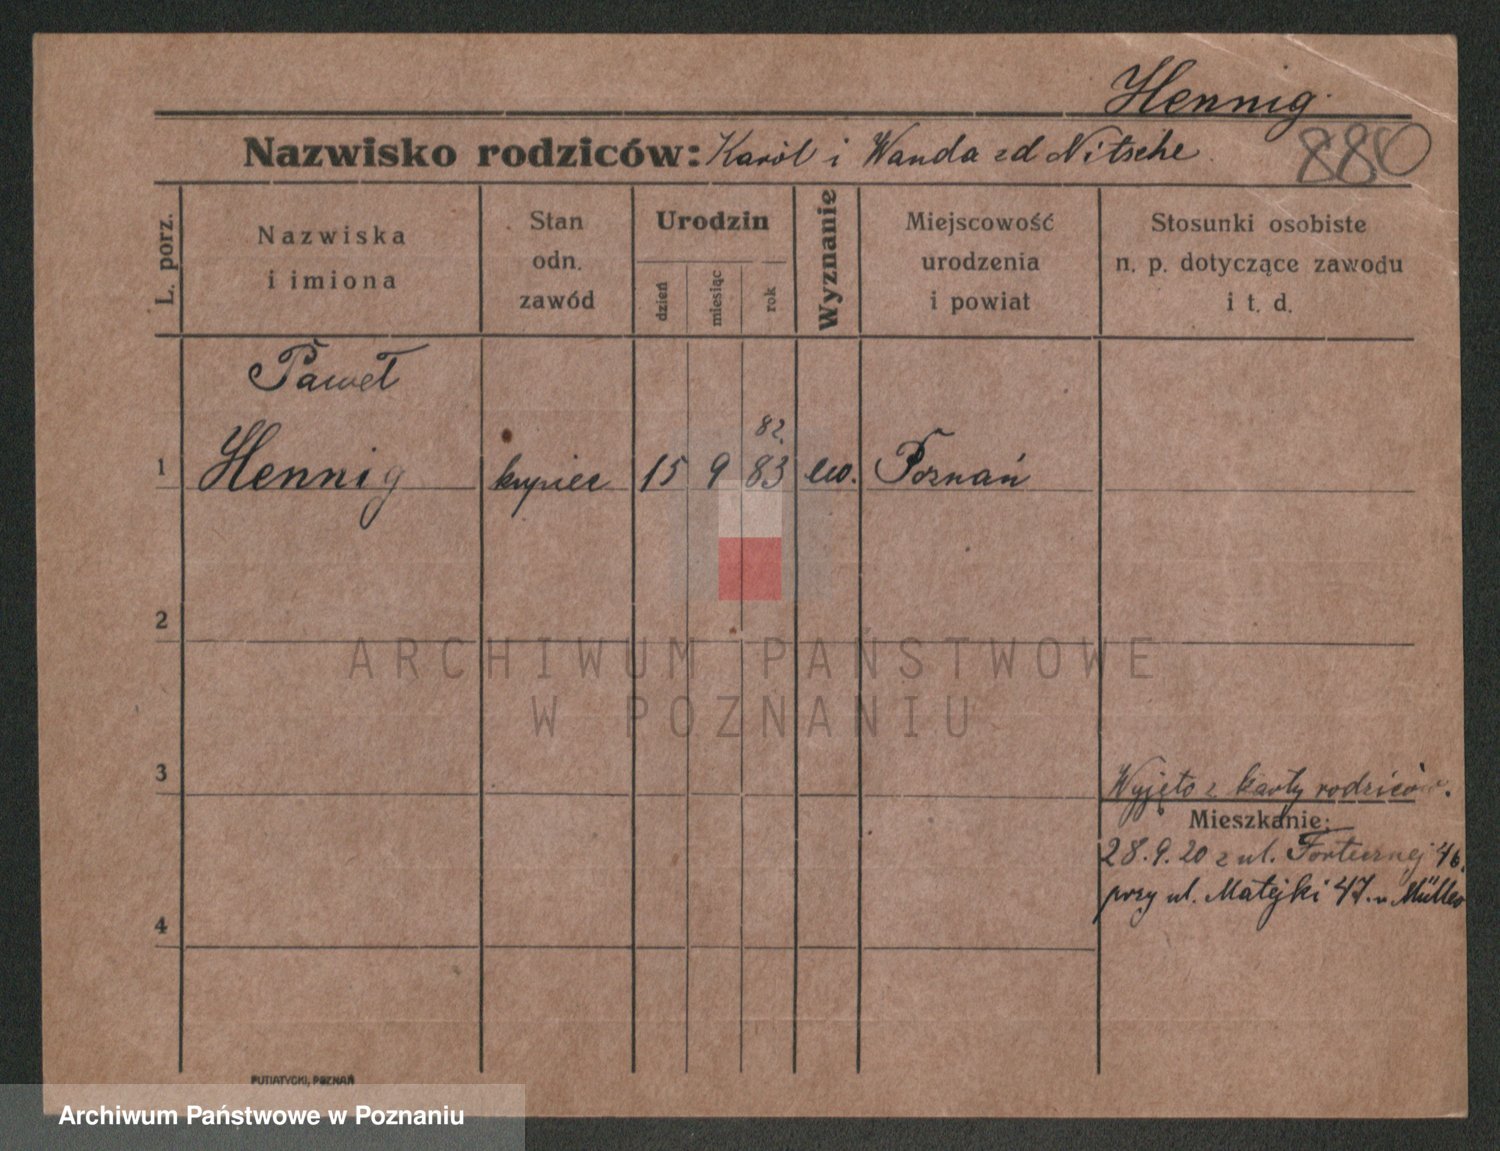 Hennig.
880
Nazwisko rodziców: Karól i Wanda zd Nitsche
L. porz.
Nazwiska
i imiona
Stan
odn.
zawód
Urodzin
dzień
miesiąc
rok
Wyznanie
Miejscowość
urodzenia
i powiat
Stosunki osobiste
n. p. dotyczące zawodu
i t. d.
Paweł
82.
1 Hennig kupiec 15 9 83 ew. Poznań
2
ARCHIWUM PAŃSTWOWE
W POZNANIU
3
Wyjęto z karty rodziców.
Mieszkanie:
28.9.20 z ul. Fortecznej 46.
przy ul. Matejki 47. u Müller
4
PUTIATYCKI, POZNAŃ
Archiwum Państwowe w Poznaniu